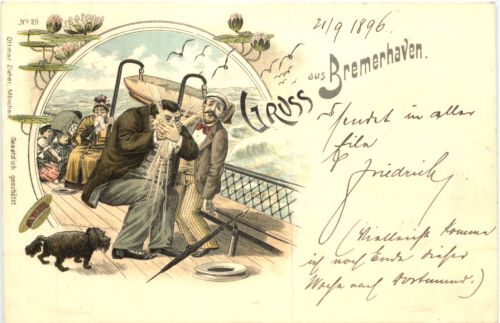 No 20
21/9 1896.
Gruss
aus Bremerhaven.
Sendet in aller
Eile
Friedrich
(Vielleicht komme
ich noch Ende dieser
Woche nach Dortmund.)
Ottmar Zieher, München.
Gesetzlich geschützt